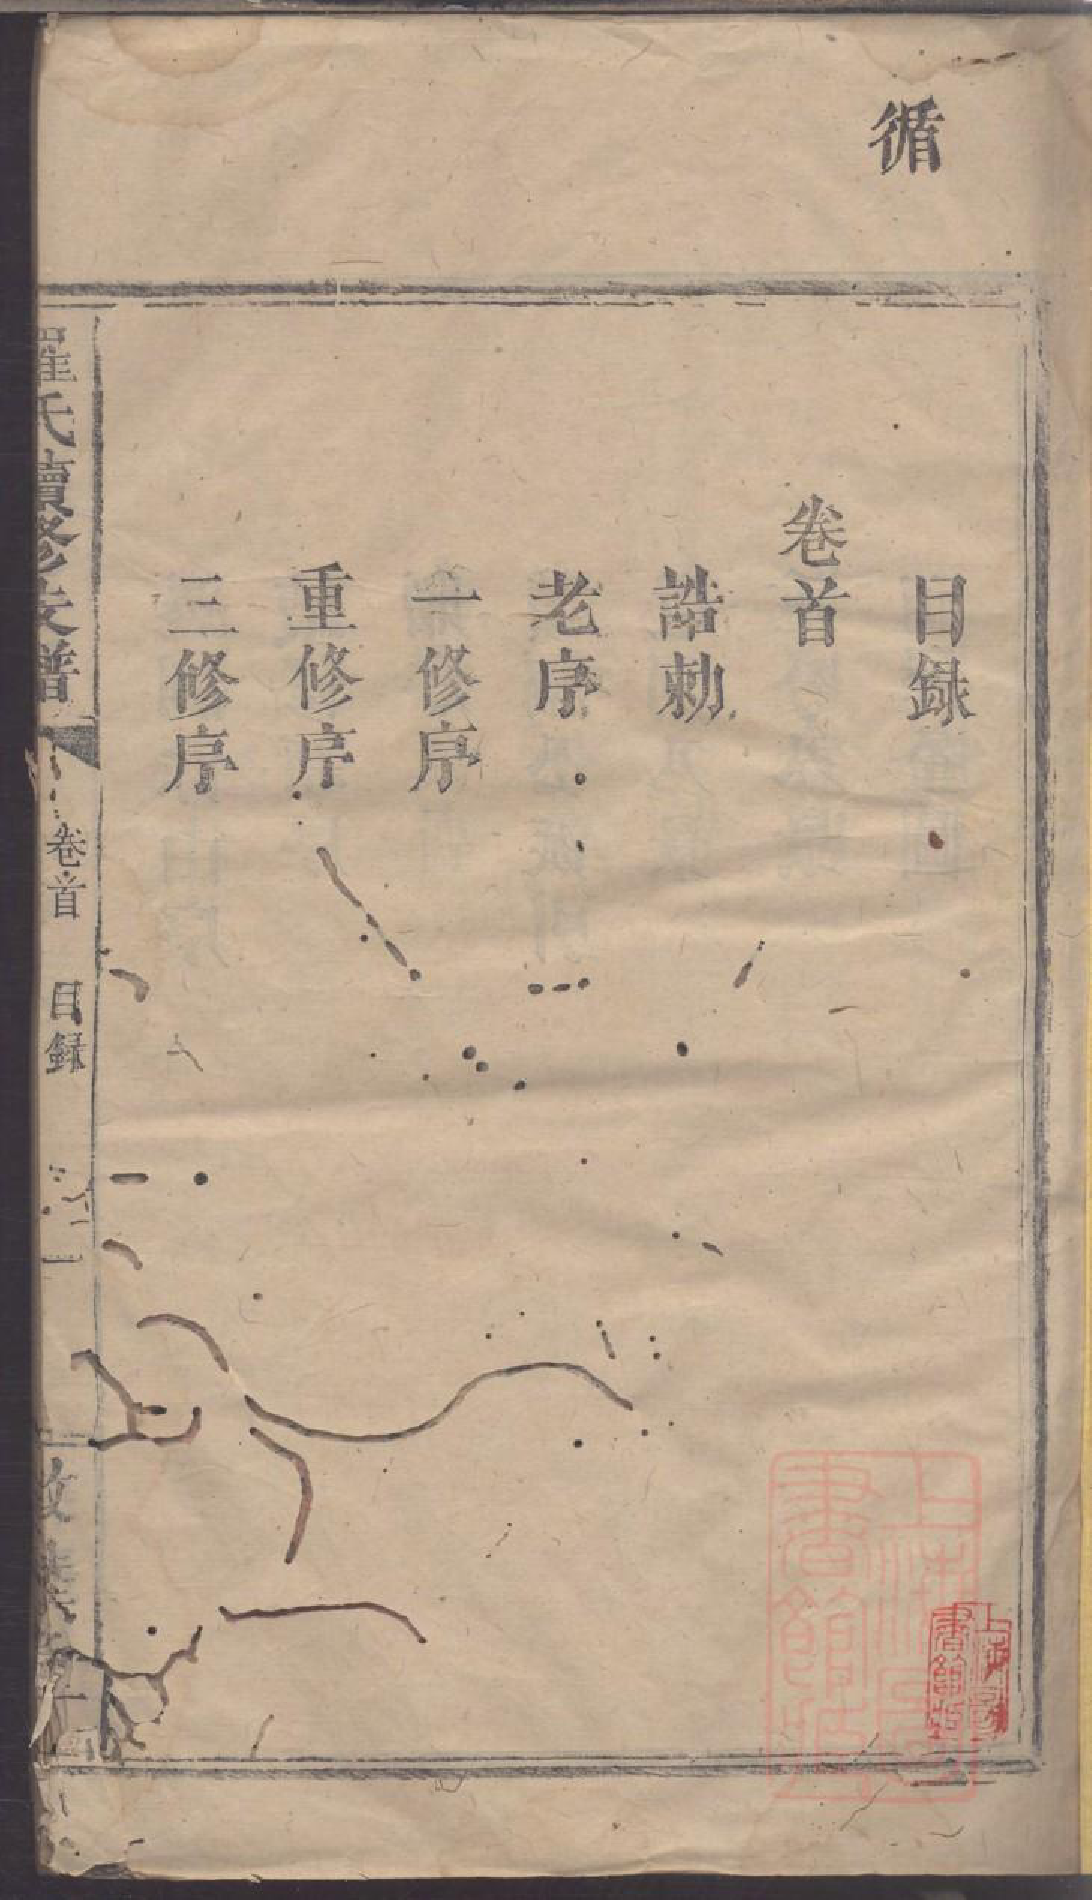 循
目録
卷首
誥勅
老序
一修序
重修序
三修序
羅氏續修支譜
卷首
目録
一
敦
上海圖書館藏
上海圖書館藏